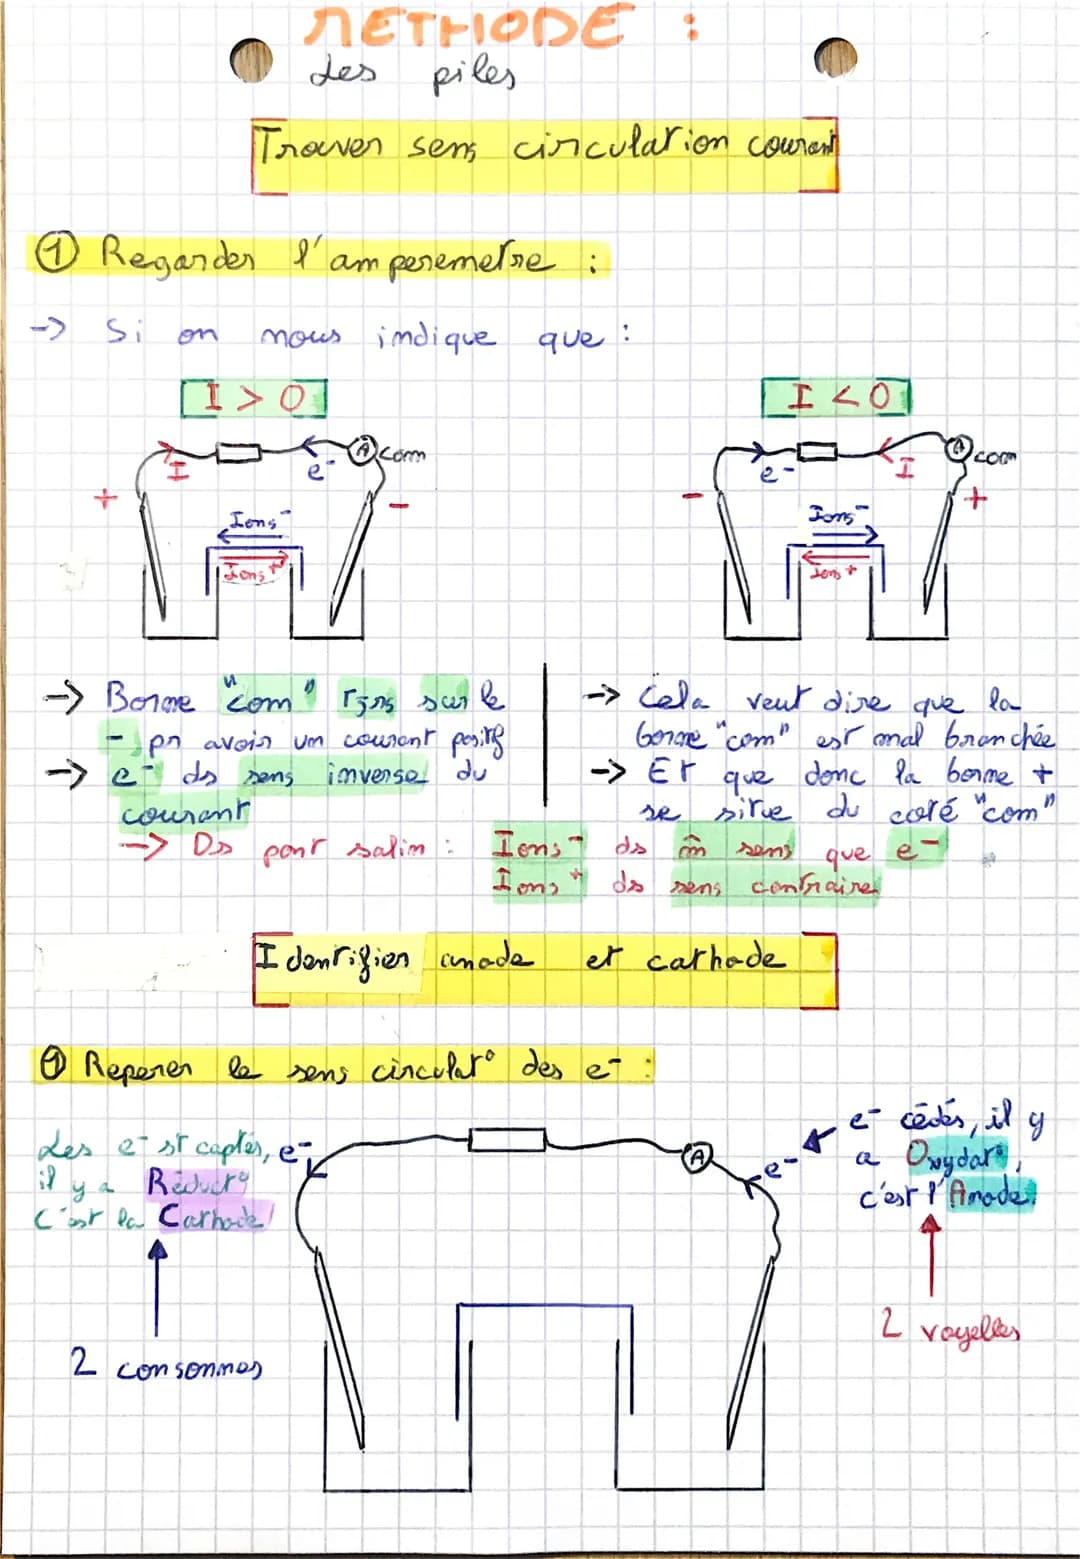 METHODE :
des piles
Trouver sens circulation courant
① Regarder l'amperemetre :
-> Si on nous indique que :
I > 0
I < 0
I e- A com
e- I A com
+ -
- +
Ions-
Ions+
Ions-
Ions+
-> Borne "com" tjrs sur le
- pr avoir un courant positif
-> e- ds sens inverse du
courant
-> Cela veut dire que la
borne "com" est mal branchée
-> Et que donc la borne +
se situe du coté "com"
-> Ds pont salin : Ions- ds m̂ sens que e-
Ions+ ds sens contraire
Identifier anode et cathode
① Reperer le sens circulat° des e- :
Les e- st captés,
il y a Réduct°
C'est la Cathode
2 consonnes
e-
A
e-
e- cédés, il y
a Oxydat°,
c'est l'Anode.
2 voyelles